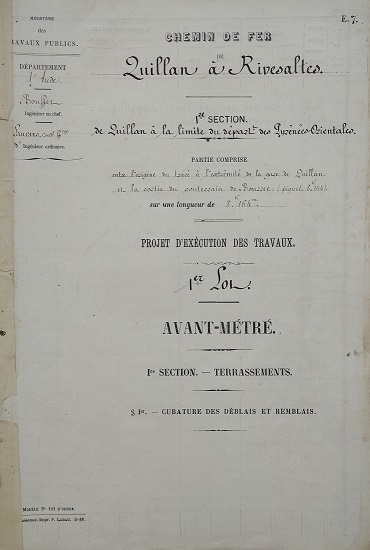 MINISTÈRE
des
TRAVAUX PUBLICS.
DÉPARTEMENT
l'Aude
Bouffet
Ingénieur en chef.
Ingénieur ordinaire.
E. 7.
CHEMIN DE FER
DE
Quillan à Rivesaltes.
1re SECTION.
de Quillan à la limite du départt des Pyrénées-Orientales.
PARTIE COMPRISE
entre l'origine du tracé à l'extrémité de la gare de Quillan
et la sortie du souterrain de
sur une longueur de
PROJET D'EXÉCUTION DES TRAVAUX.
1er Lot.
AVANT-MÉTRÉ.
Ire SECTION. — TERRASSEMENTS.
§ Ier. — CUBATURE DES DÉBLAIS ET REMBLAIS.
MODÈLE No 101
Impr. F.